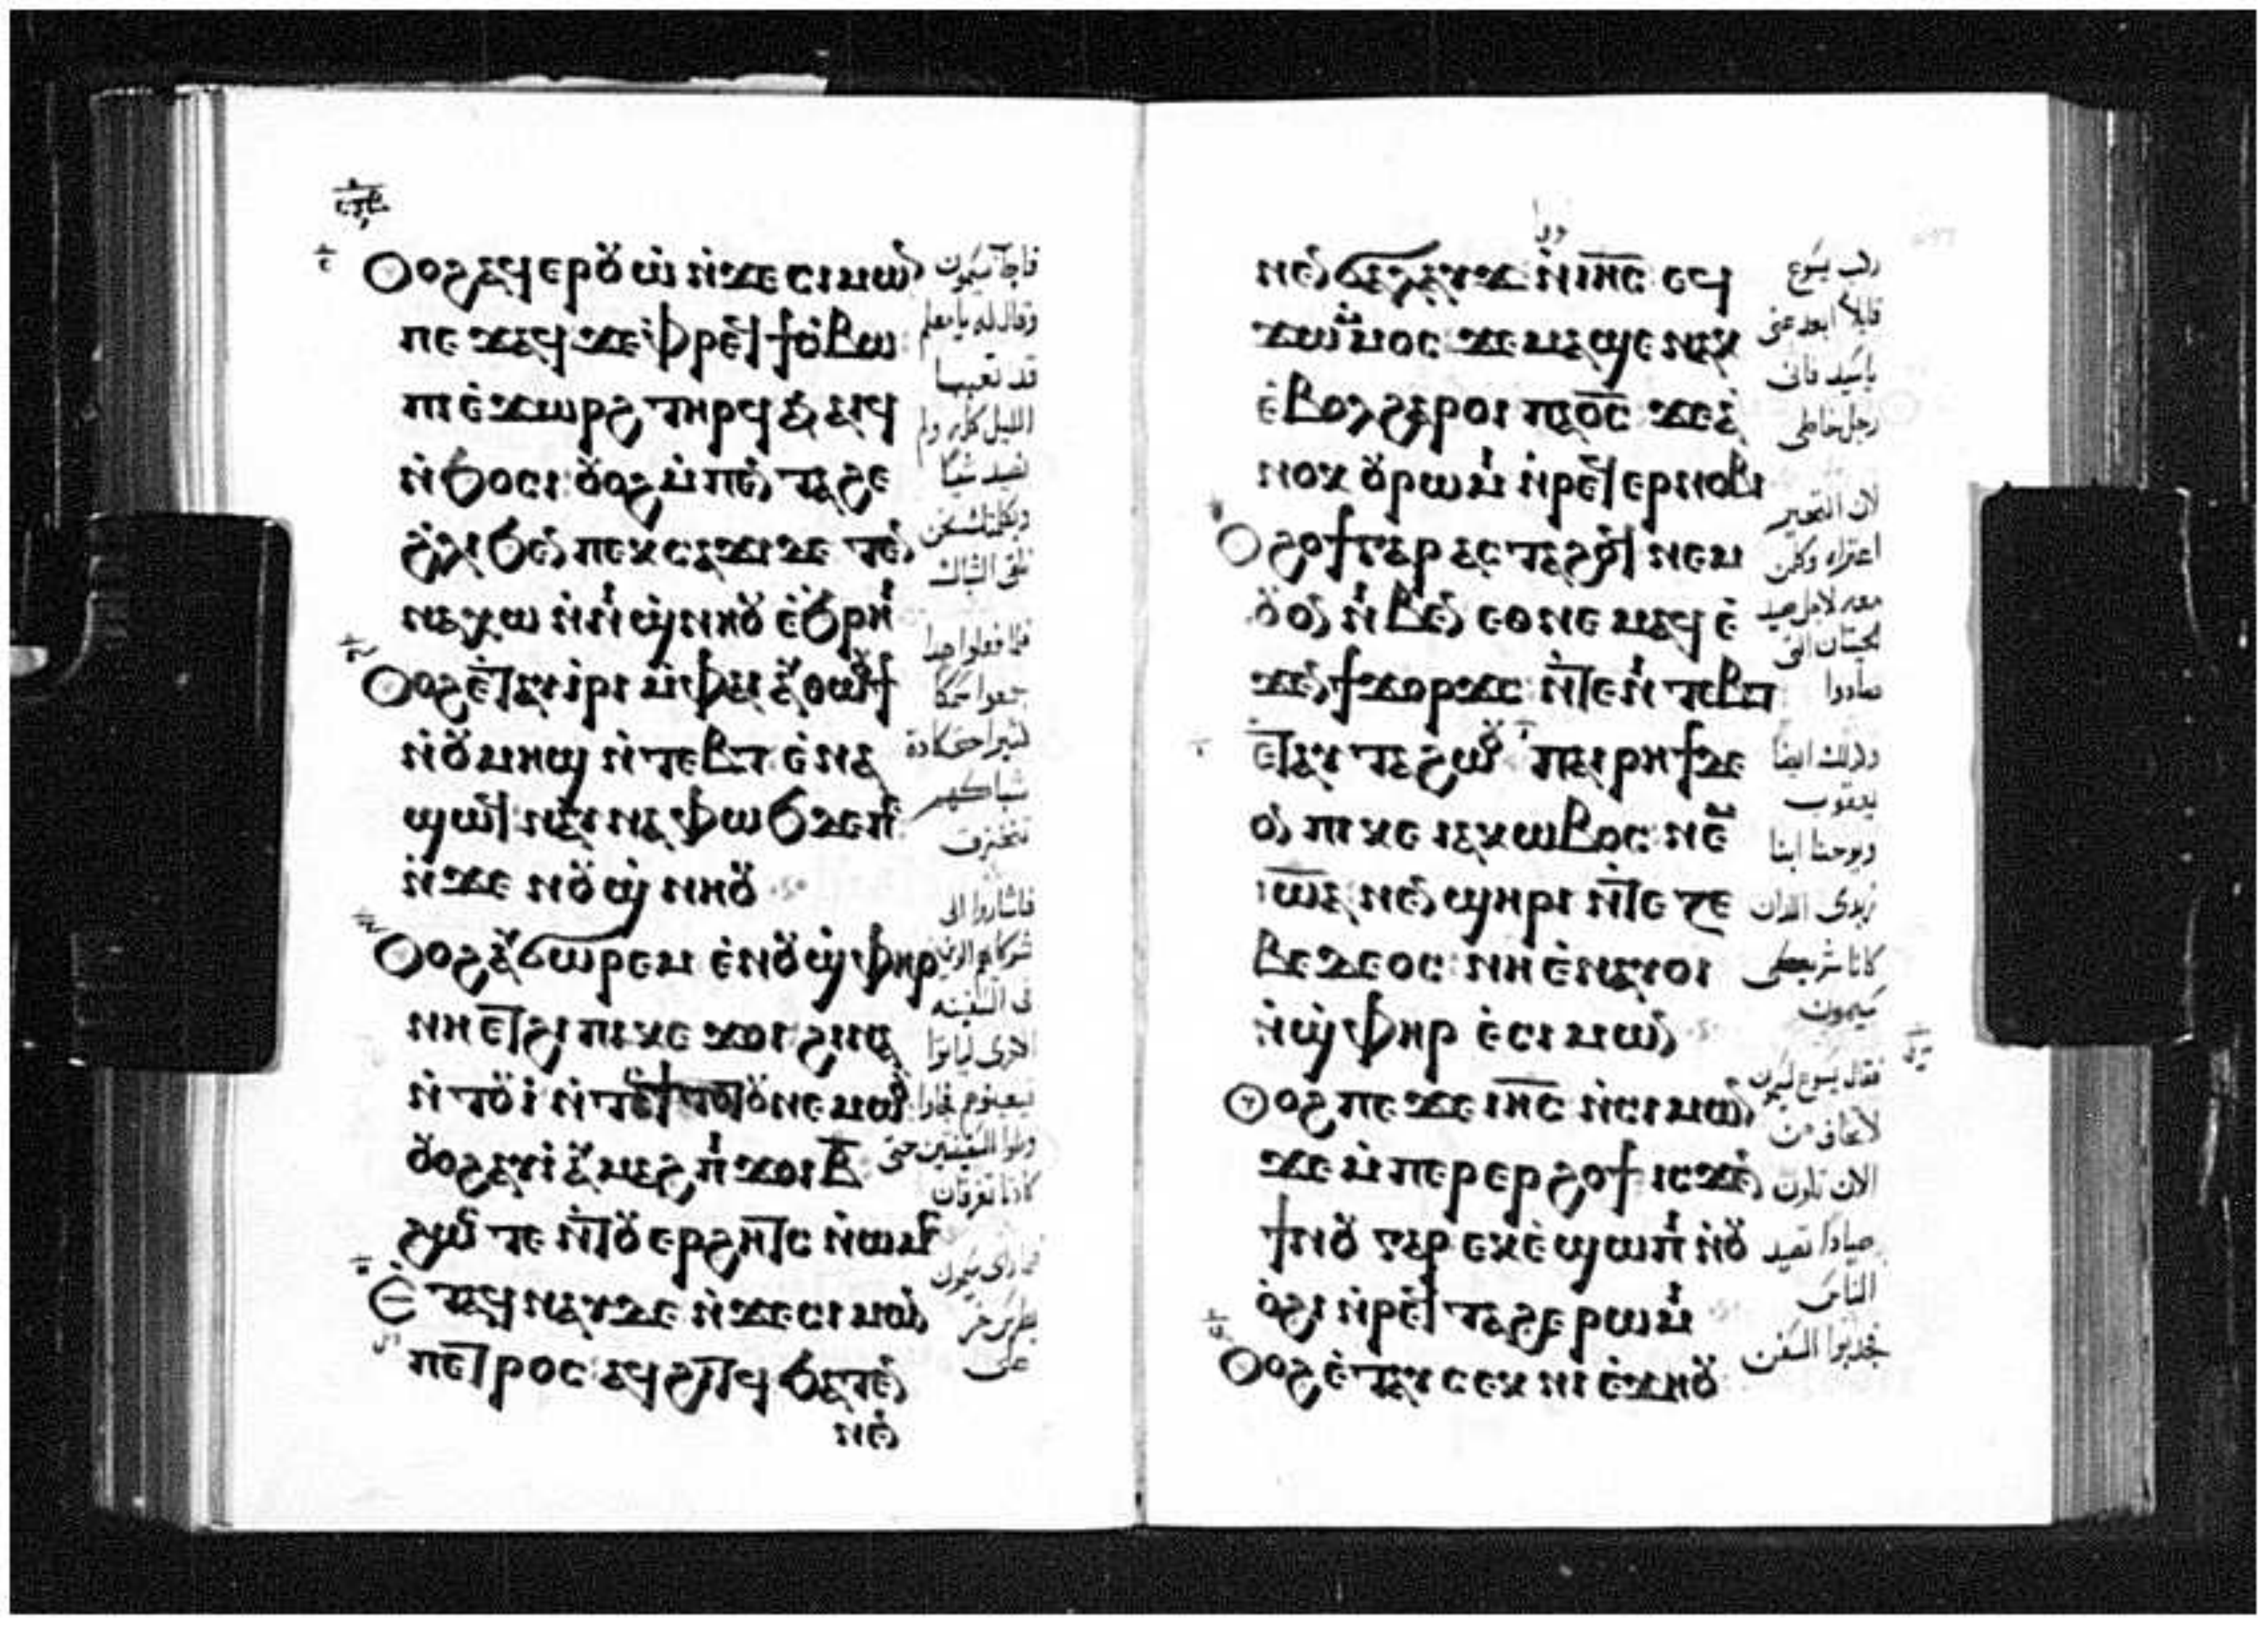 Ⲟⲩⲟϩ ⲁϥⲉⲣⲟⲩⲱ̀ ⲛ̀ϫⲉ ⲥⲓⲙⲱⲛ
ⲡⲉϫⲁϥ ϫⲉ ⲫ̀ⲣⲉϥϯⲥ̀ⲃⲱ
ⲡⲓⲉ̀ϫⲱⲣϩ ⲧⲏⲣϥ ⲁⲛϥ
ⲛ̀ϧⲟⲥⲓ ⲟⲩⲟϩ ⲙ̀ⲡⲉⲛⲧⲁϩⲉ
ϩ̀ⲗⲓ ϧⲉⲛ ⲡⲉⲕⲥⲁϫⲓ ⲇⲉ ⲧⲉⲛ
ⲛⲁⲭⲱ ⲛ̀ⲛⲓϣ̀ⲛⲏⲟⲩ ⲉ̀ϧⲣⲏⲓ
Ⲟⲩⲟϩ ⲉ̀ⲧⲁⲩⲓⲣⲓ ⲙ̀ⲫⲁⲓ ⲁⲩⲑⲱⲟⲩϯ
ⲛ̀ⲟⲩⲙⲏϣ ⲛ̀ⲧⲉⲃⲧ ⲉ̀ⲛⲁ
ϣⲱⲟⲩ ⲛⲁⲩⲛⲁⲫⲱϧ ⲇⲉ ⲡⲉ
ⲛ̀ϫⲉ ⲛⲟⲩϣ̀ⲛⲏⲟⲩ
Ⲟⲩⲟϩ ⲁⲩϭⲱⲣⲉⲙ ⲉ̀ⲛⲟⲩϣ̀ⲫⲏⲣ
ⲛⲏⲉⲧϩⲓ ⲡⲓⲕⲉϫⲟⲓ ϩⲓⲛⲁ
ⲛ̀ⲧⲟⲩⲓ̀ ⲛ̀ⲧⲟⲩϯⲧⲟⲧⲟⲩ ⲛⲉⲙⲱⲟⲩ
ⲟⲩⲟϩ ⲁⲩⲓ̀ ⲁⲩⲙⲁϩ ⲡⲓϫⲟⲓ ⲃ̅
ϩⲱⲥⲧⲉ ⲛ̀ⲧⲟⲩⲉⲣϩⲏⲧⲥ ⲛ̀ⲱⲙⲥ
Ⲉ̀ⲧⲁϥⲛⲁⲩ ⲇⲉ ⲛ̀ϫⲉ ⲥⲓⲙⲱⲛ
ⲡⲉⲧⲣⲟⲥ ⲁϥϩⲓⲧϥ ϧⲁⲧⲉⲛ
ⲛⲉⲛ
فاجاب سيمون
وقال له يا معلم
قد تعبنا
الليل كله ولم
نصيد شيا
وبكلمتك نحن
نلقى الشباك
فلما فعلوا هذا
جمعوا سمكا
كثيرا حتى كادة
شباكهم
تتخرق
فاشاروا الى
شركاهم الذين
فى السفينه
الاخرى لياتوا
يعينوهم فجاوا
وملوا السفينتين حتى
كادتا تغرقان
فلما راى سيمون
بطرس خر
على
ⲛⲉⲛϭⲁⲗⲁⲩϫ ⲛ̀ⲓⲏ̅ⲥ̅ ⲉϥ
ϫⲱⲙ̀ⲙⲟⲥ ϫⲉ ⲙⲁϣⲉ ⲛⲁⲕ
ⲉ̀ⲃⲟⲗϩⲁⲣⲟⲓ ⲡⲁⲟ̅ⲥ̅ ϫⲉ ⲁ
ⲛⲟⲕ ⲟⲩⲣⲱⲙⲓ ⲛ̀ⲣⲉϥⲉⲣⲛⲟⲃⲓ
Ⲟⲩϩⲟϯ ⲅⲁⲣ ⲁⲥⲧⲁϩⲟϥ ⲛⲉⲙ
ⲟⲩⲟⲛ ⲛⲓⲃⲉⲛ ⲉⲑⲛⲉⲙⲁϥ ⲉ̀
ϫⲉⲛ ϯϫⲟⲣϫⲥ ⲛ̀ⲧⲉ ⲛⲓⲧⲉⲃⲧ
ⲉ̀ⲧⲁⲩⲧⲁϩⲱⲟⲩ ⲡⲁⲓⲣⲏϯ ⲇⲉ
ⲟⲛ ⲡⲓⲕⲉ ⲓⲁⲕⲱⲃⲟⲥ ⲛⲉⲙ
ⲓⲱ̅ⲁ̅ ⲛⲉⲛϣⲏⲣⲓ ⲛ̀ⲧⲉ ⲍⲉ
ⲃⲉⲇⲉⲟⲥ ⲛⲏ ⲉ̀ⲛⲁⲩⲟⲓ
ⲛ̀ϣ̀ⲫⲏⲣ ⲉ̀ⲥⲓⲙⲱⲛ
Ⲟⲩⲟϩ ⲡⲉϫⲉ ⲓⲏ̅ⲥ̅ ⲛ̀ⲥⲓⲙⲱⲛ
ϫⲉ ⲙ̀ⲡⲉⲣⲉⲣϩⲟϯ ⲓⲥϫⲉⲛ
ϯⲛⲟⲩ ⲅⲁⲣ ⲉⲕⲉ̀ϣⲱⲡⲓ ⲛ̀ⲟⲩ
ⲟ̀ϩⲓ ⲛ̀ⲣⲉϥⲧⲁϩⲉ ⲣⲱⲙⲓ
Ⲟⲩⲟϩ ⲉ̀ⲧⲁⲩⲥⲉⲕ ⲛⲓⲉ̀ϫⲏⲟⲩ
ركب يسوع
قايلا ابعد عنى
ياسيد فانى
رجل خاطى
لان التحير
اعتراه وكلمن
معه لاجل صيد
الحيتان التى
صادوا
وكذلك ايضا
يعقوب
ويوحنا ابنا
زبدى اللذان
كانا شريكى
سيمون
فقال يسوع لسيمون
لاتخاف من
الان تكون
صيادا تصيد
الناس
فجذبوا السفن